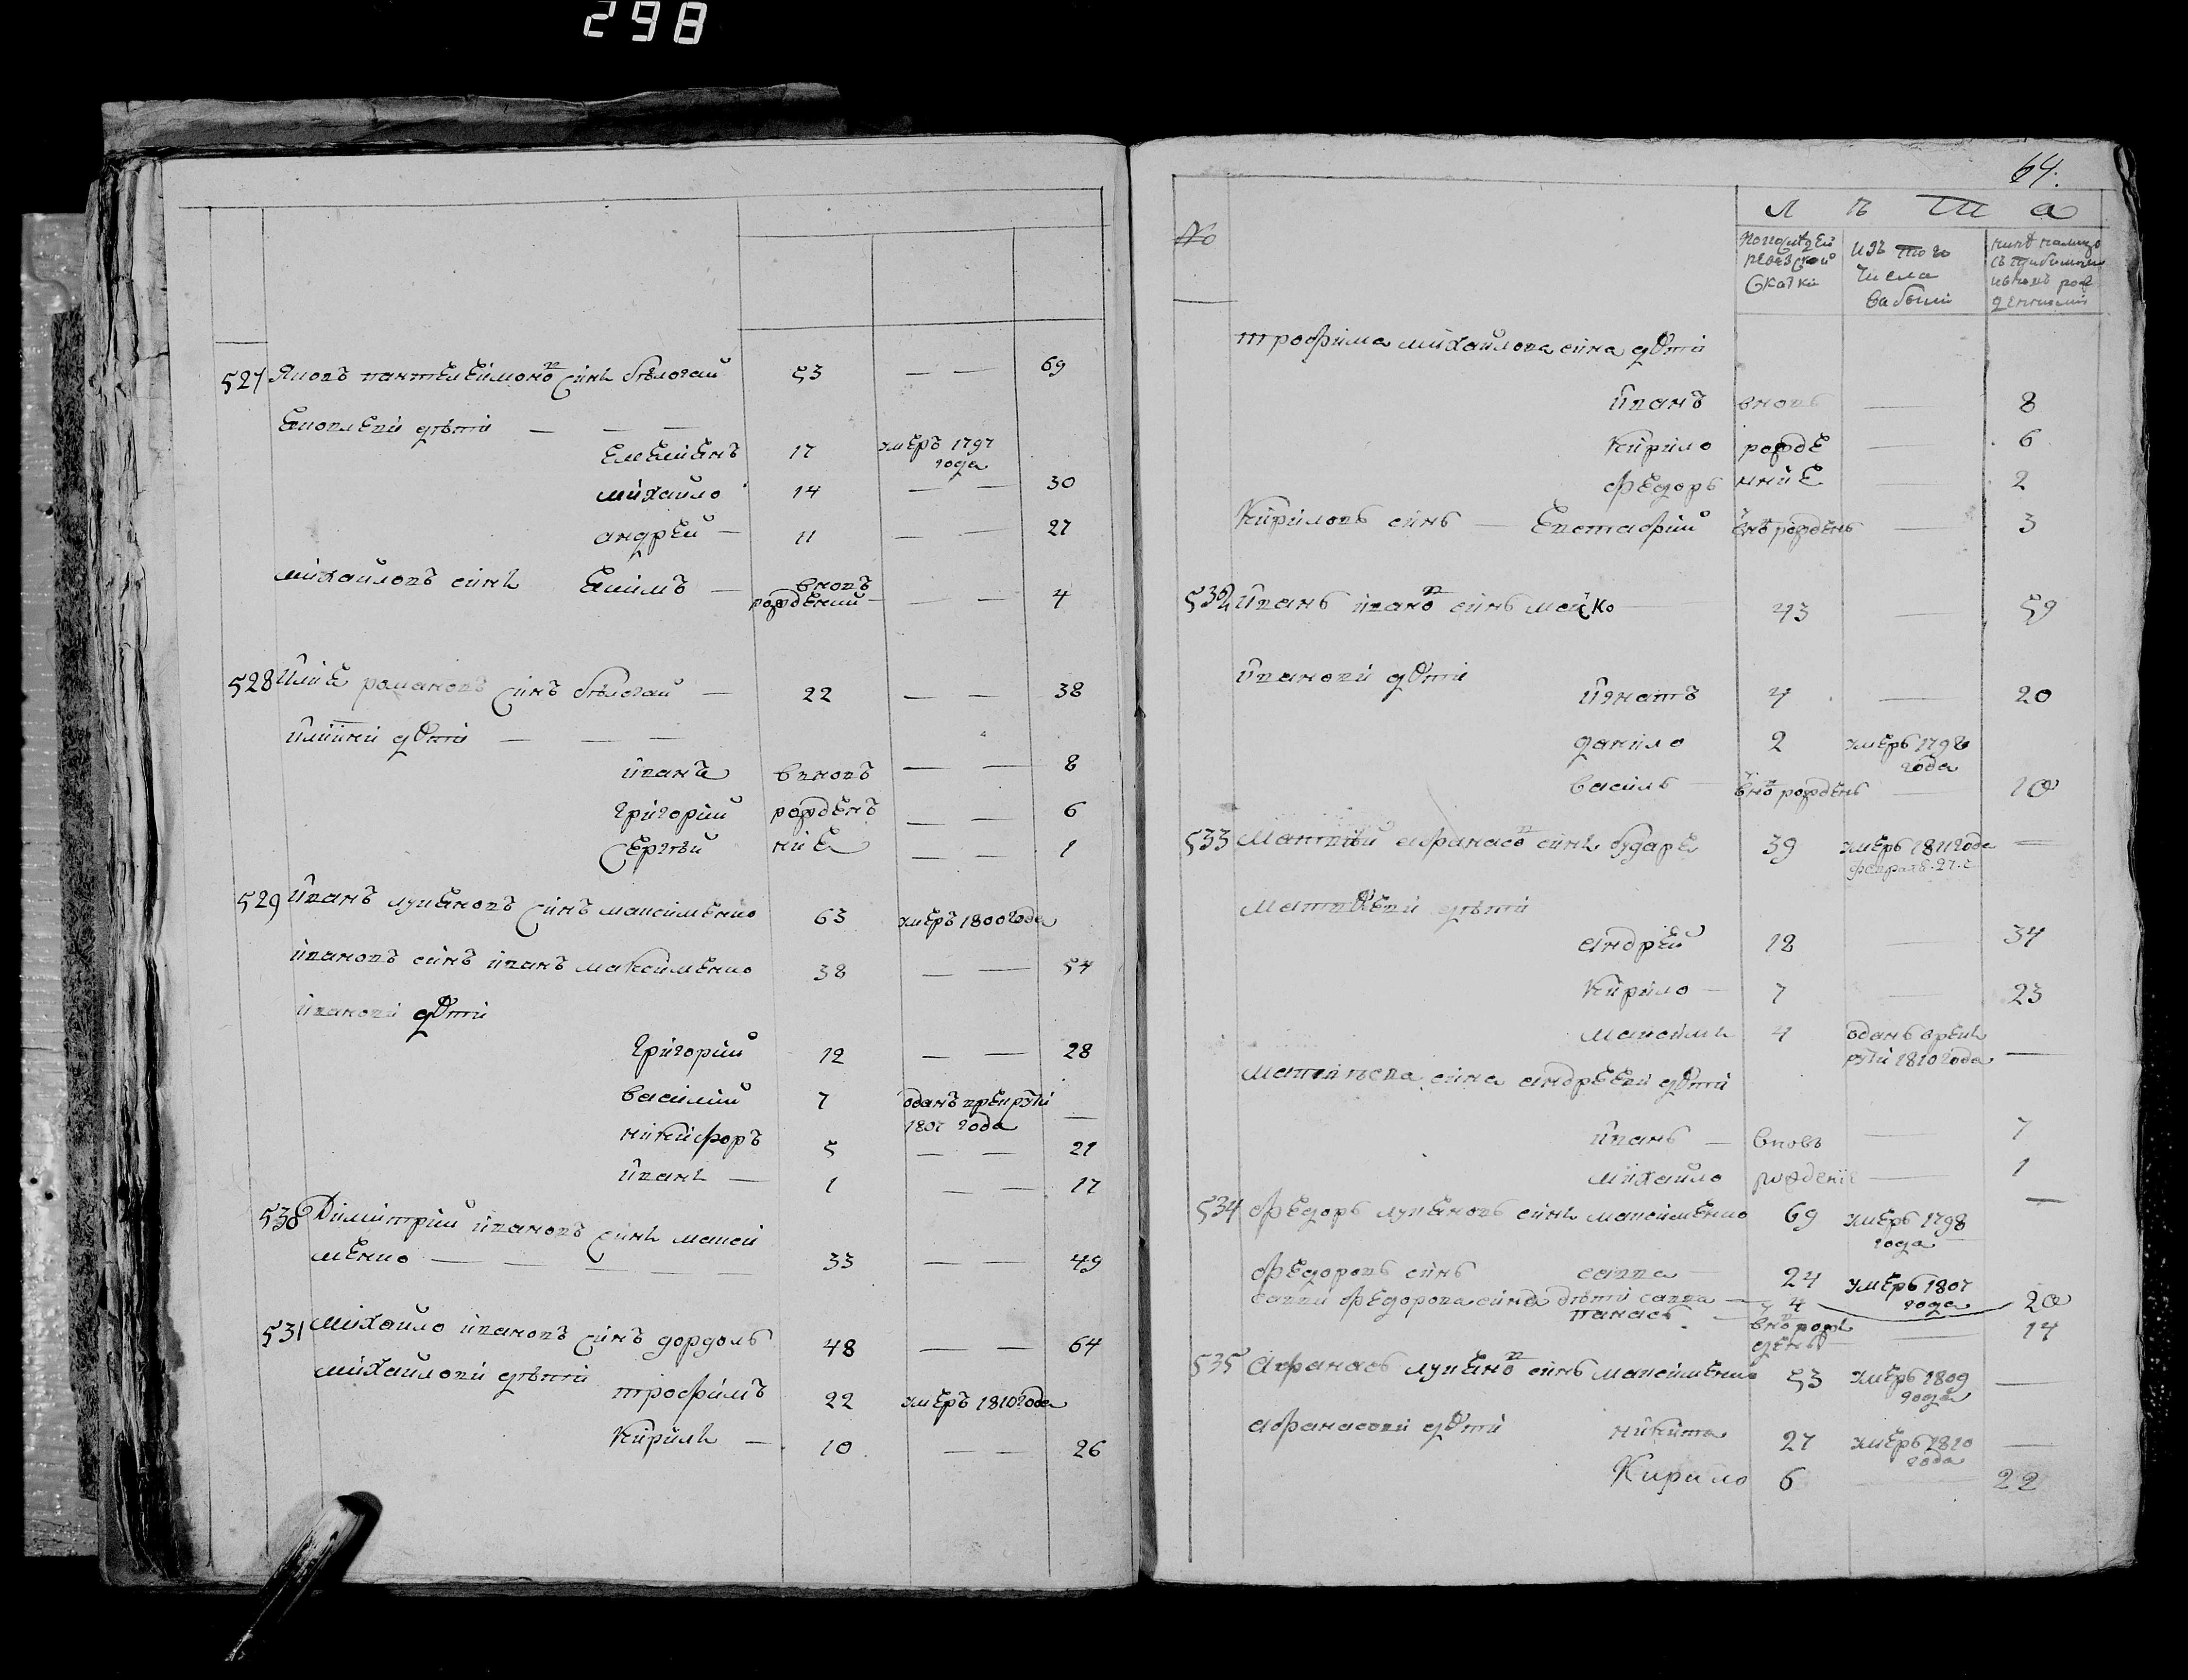 298
527 Яковъ пантелеймоновъ синъ бѣлогай 53 — — 69
Яковлеви дѣти — — —
Емелиянъ 17 умеръ 1797 года
михайло 14 — — 30
андрей — 11 — — 27
михайловъ синъ Якимъ — вновъ рождений — — — 4
528 Илия романовъ синъ бѣлогай — 22 — — 38
Илиини дѣти — — —
иванъ вновъ — — 8
григорий рожден — — 6
сергѣй ние — — 1
529 Иванъ лукяновъ синъ максименко 63 умеръ 1800 года
ивановъ синъ иванъ максименко 38 — — 54
иванови дѣти
григорий 12 — — 28
василий 7 одань врекрути 1807 года —
никифоръ 5 — — 21
иванъ — 1 — — 17
530 Димитрий ивановъ синъ макси
менко — — — — — 33 — — 49
531 михайло ивановъ синъ дордоль 48 — — 64
михайлови дѣти
трофимъ 22 умеръ 1810 года
Кирилъ — 10 — — 26
64.
№ Л ѣ т а
Попоследней ревезской Скаски
изъ того числа вабыли
трофима михайлова сина дѣти
иванъ вновь — 8
Кирило рожде — 6
федорь ние — 2
Кириловъ синь — Евстафий вновь рождень — 3
532 Ивань ивановъ синь мойско 43 — 59
иванови дѣти
игнатъ 4 — 20
данило 2 умерь 1798 года
василь — вновь рождень — 10
533 Матвѣй афанасовъ синъ бударе 39 умерь 1811 года февраля 27. ч —
Матвѣеви дѣти
андрей 18 — 34
Кирило — 7 — 23
максимъ 4 одань врек рути 1810 года —
матвѣева сина андрееви дѣти
ивань — вновь — 7
михайло рождение — 1
534 Федорь лукяновъ синъ максименко 69 умерь 1798 года —
федоровъ синь савва 24 умерь 1807 года
савви федорова сина дѣти савва — 4 20
панась — вновь рож денъ — 14
535 Афанась лукяновъ синь максименко 53 умерь 1809 года —
афанасови дѣти никита 27 умерь 1810 года —
Кирило 6 — 22